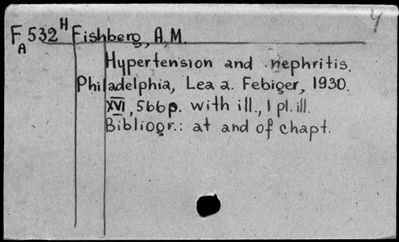 F 532 H Fishberg, A.M.
A
Hypertension and nephritis.
Philadelphia, Lea a. Febiger, 1930.
XVI, 566p. with ill., 1 pl. ill.
Bibliogr.: at and of chapt.